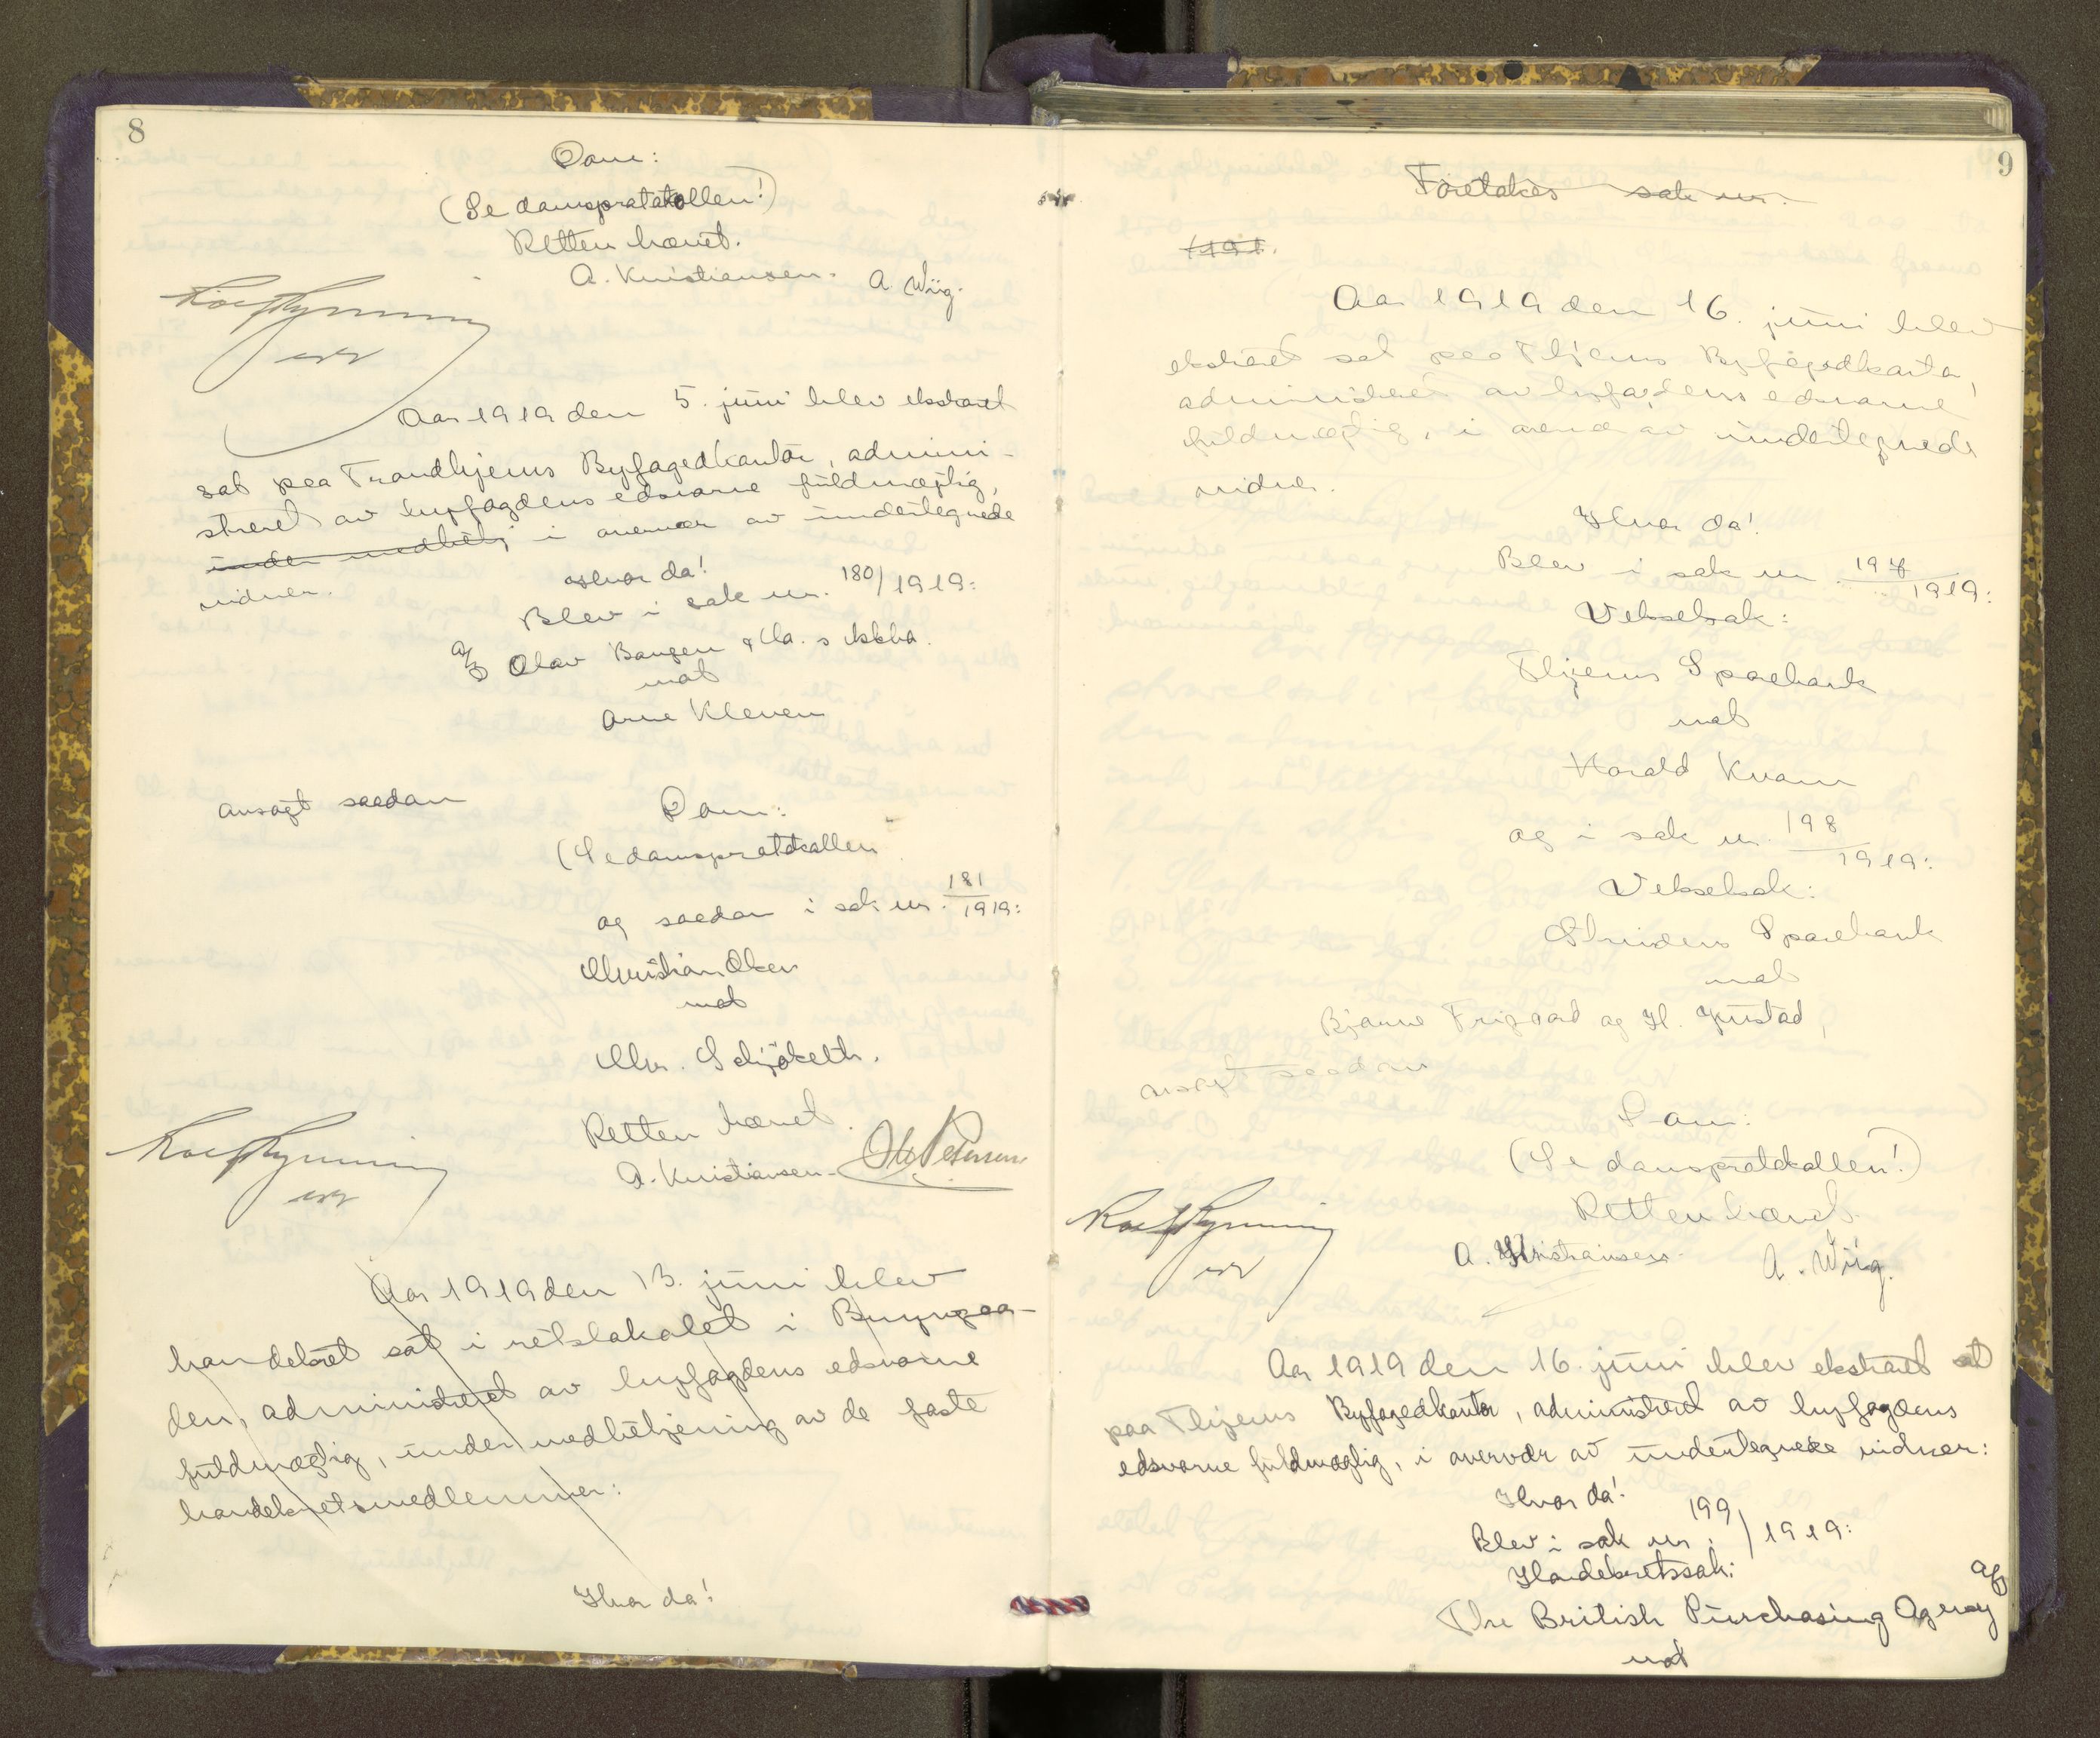 8
Dom:
(Se domsprotokollen!)
Retten hævet.
A. Kristiansen. A. Wiig.
Aar 1919 den 5. juni blev ekstraret
sat paa Trondhjems Byfogedkontor, admini-
streret av byfogdens edsvorne fuldmægtig,
under medhetj i overvær av undertegnede
vidner.
Hvor da!
Blev i sak nr. 180/1919:
A/S Olav Bangen & Co.s
mot
Arne Kleven
avsagt saadan
Dom:
(Se domsprotokollen
og saadan i sak nr. 181/1919:
Christian Olsen
mot
Chr. Schjölberg.
Retten hævet.
A. Kristiansen. Ole Petersen
Aar 1919 den 13. juni blev
handelsret sat i retslokalet i Brynngaa-
den, administreret av byfogdens edsvorne
fuldmægtig, under medbetjening av de faste
handelsretsmedlemmer:
Hvor da!
9
Foretakes sak nr.
1191.
Aar 1919 den 16. juni blev
ekstraret sat paa Thjems Byfogedkontor,
administreret av byfogdens edsvorne
fuldmægtig, i overvær av undertegnede
vidner.
Hvor da!
Blev i sak nr. 197/1919:
Vekselsak:
Thjems Sparebank
mot
Harald Kvam
og i sak nr. 198/1919:
Vekselsak:
Strindens Sparebank
mot
Bjarne Frigaard og H. Gustad,
avsagt saadan
Dom:
(Se domsprotokollen!)
Retten hævet.
A. Kristiansen. A. Wiig.
Aar 1919 den 16. juni blev ekstraret sat
paa Thjems Byfogedkontor, administreret av byfogdens
edsvorne fuldmægtig, i overvær av undertegnede vidner:
Hvor da!
Blev i sak nr. 199/1919:
Handelsretssak:
The British Purchasing Agency A/S
mot